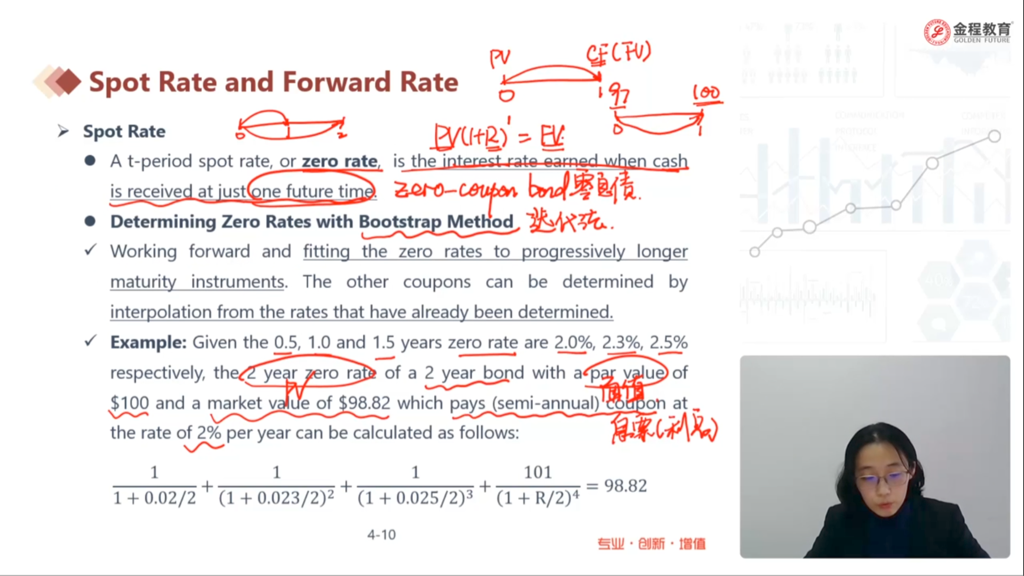 金程教育
GOLDEN FUTURE
Spot Rate and Forward Rate
PV
CF(FV)
0
1
97
100
0
1
0
1
2
PV(1+R)¹ = FV
Spot Rate
A t-period spot rate, or zero rate, is the interest rate earned when cash
is received at just one future time.
zero-coupon bond 零息债.
Determining Zero Rates with Bootstrap Method
迭代法.
Working forward and fitting the zero rates to progressively longer
maturity instruments. The other coupons can be determined by
interpolation from the rates that have already been determined.
Example: Given the 0.5, 1.0 and 1.5 years zero rate are 2.0%, 2.3%, 2.5%
respectively, the 2 year zero rate of a 2 year bond with a par value of
PV
面值
$100 and a market value of $98.82 which pays (semi-annual) coupon at
the rate of 2% per year can be calculated as follows:
息票(利息)
1/(1 + 0.02/2) + 1/(1 + 0.023/2)² + 1/(1 + 0.025/2)³ + 101/(1 + R/2)⁴ = 98.82
4-10
专业·创新·增值